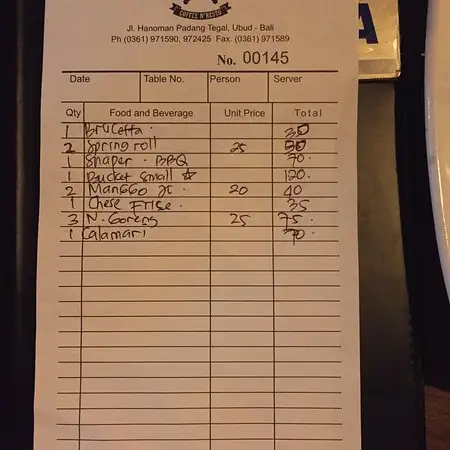 COFFEE N' RESTO
Jl. Hanoman Padang Tegal, Ubud - Bali
Ph (0361) 971590, 972425 Fax. (0361) 971589
No. 00145
Date Table No. Person Server
Qty Food and Beverage Unit Price Total
1 Bruceffa . 30
2 Spring roll 25 50
1 Shaper . BBQ 70 .
1 Bucket Small ☆ 120 .
2 Mango Jc . 20 40
1 Chese Frise . 35
3 N. Goreng 25 75 .
1 Calamari
A